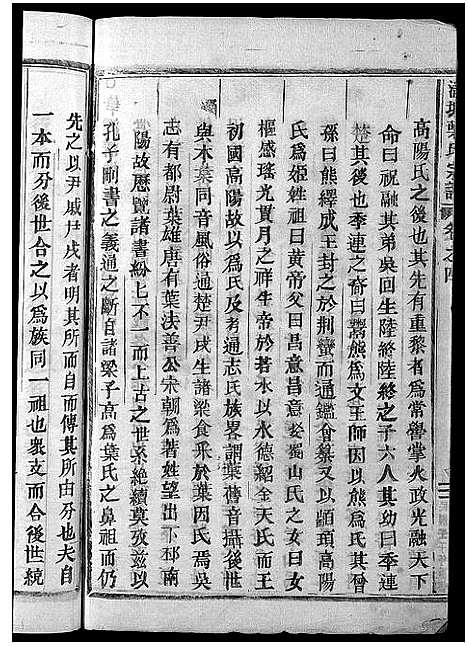 葉氏宗譜 卷之
高陽氏之後也其先有重黎者爲帝嚳掌火政光融天下
命曰祝融其弟吳回生陸終陸終之子六人其幼曰季連
其後也季連之裔曰鬻熊爲文王師因以熊爲氏其曾
孫曰熊繹成王封之於荆蠻而通鑑會纂又以顓頊高陽
氏爲姬姓祖曰黃帝父曰昌意昌意娶蜀山氏之女曰女
樞感瑤光貫月之祥生帝於若水以水德紹金天氏而王
初國高陽故以爲氏及考通志氏族畧謂葉舊音攝後世
與木葉同音風俗通楚尹戌生諸梁食采於葉因氏焉吳
志有都尉葉雄唐有葉法善公宋朝爲著姓望出下邳南
陽故歷覽諸書紛匕不一而上古之世系絶續莫攷兹以
孔子刪書之義通之斷自諸梁子高爲葉氏之鼻祖而仍
先之以尹戚尹戌者明其所而自而傳其所由分也夫自
一本而分後世合之以爲族同一祖也衆支而合後世統